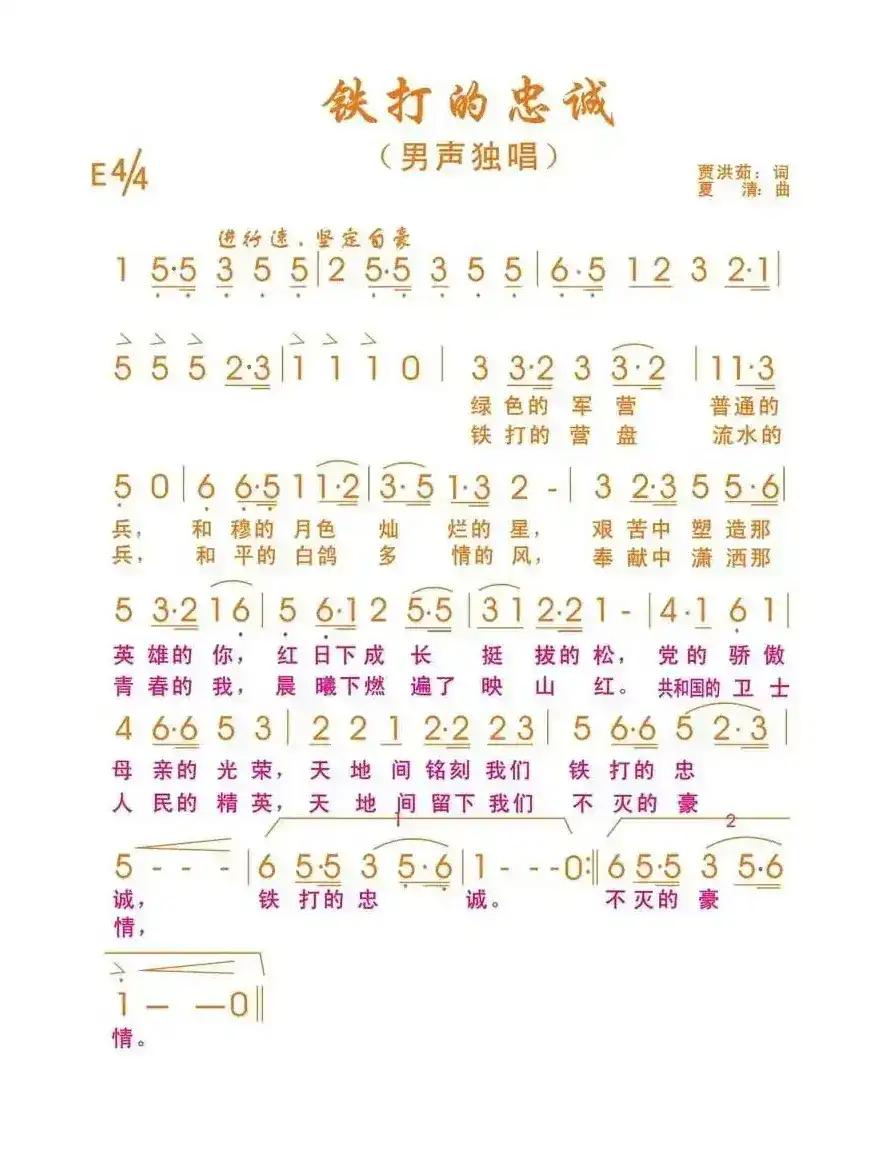 铁打的忠诚
（男声独唱）
E4/4
贾洪茹：词
夏 清：曲
进行速、坚定自豪
1 5·5 3 5 5|2 5·5 3 5 5|6·5 1 2 3 2·1|
5 5 5 2·3|1 1 1 0|3 3·2 3 3·2|11·3
绿色的 军 营 普通的
铁打的 营 盘 流水的
5 0|6 6·5 1 1·2|3·5 1·3 2 -|3 2·3 5 5·6|
兵， 和 穆的 月色 灿 烂的 星， 艰 苦中 塑 造那
兵， 和 平的 白鸽 多 情的 风， 奉 献中 潇 洒那
5 3·2 1 6|5 6·1 2 5·5|3 1 2·2 1 -|4·1 6 1|
英 雄的 你， 红 日下 成 长 挺 拔的 松， 党 的 骄 傲
青 春的 我， 晨 曦下 燃 遍了 映 山 红。 共和国的 卫 士
4 6·6 5 3|2 2 1 2·2 2 3|5 6·6 5 2·3|
母 亲的 光 荣， 天 地 间 铭刻 我们 铁 打的 忠
人 民的 精 英， 天 地 间 留下 我们 不 灭的 豪
1 2
5 - - -|6 5·5 3 5·6|1 - - -0:‖6 5·5 3 5·6
诚， 铁 打的 忠 诚。 不 灭的 豪
情，
1 — —0‖
情。